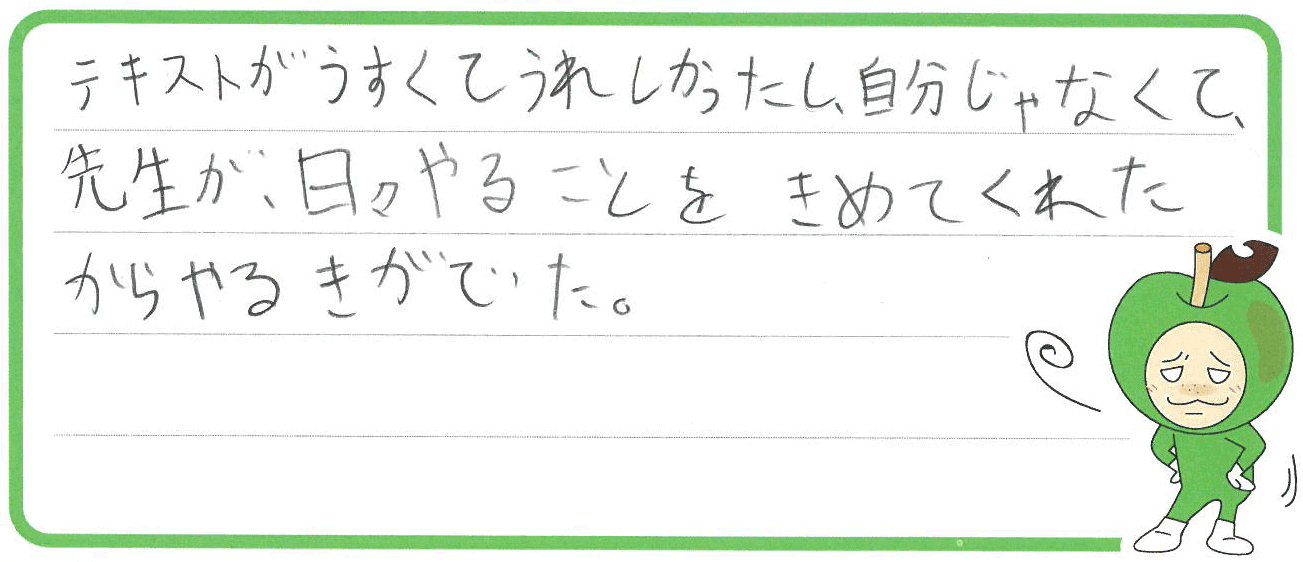 テキストがうすくてうれしかったし、自分じゃなくて、
先生が、日々やることをきめてくれた
からやるきがでた。